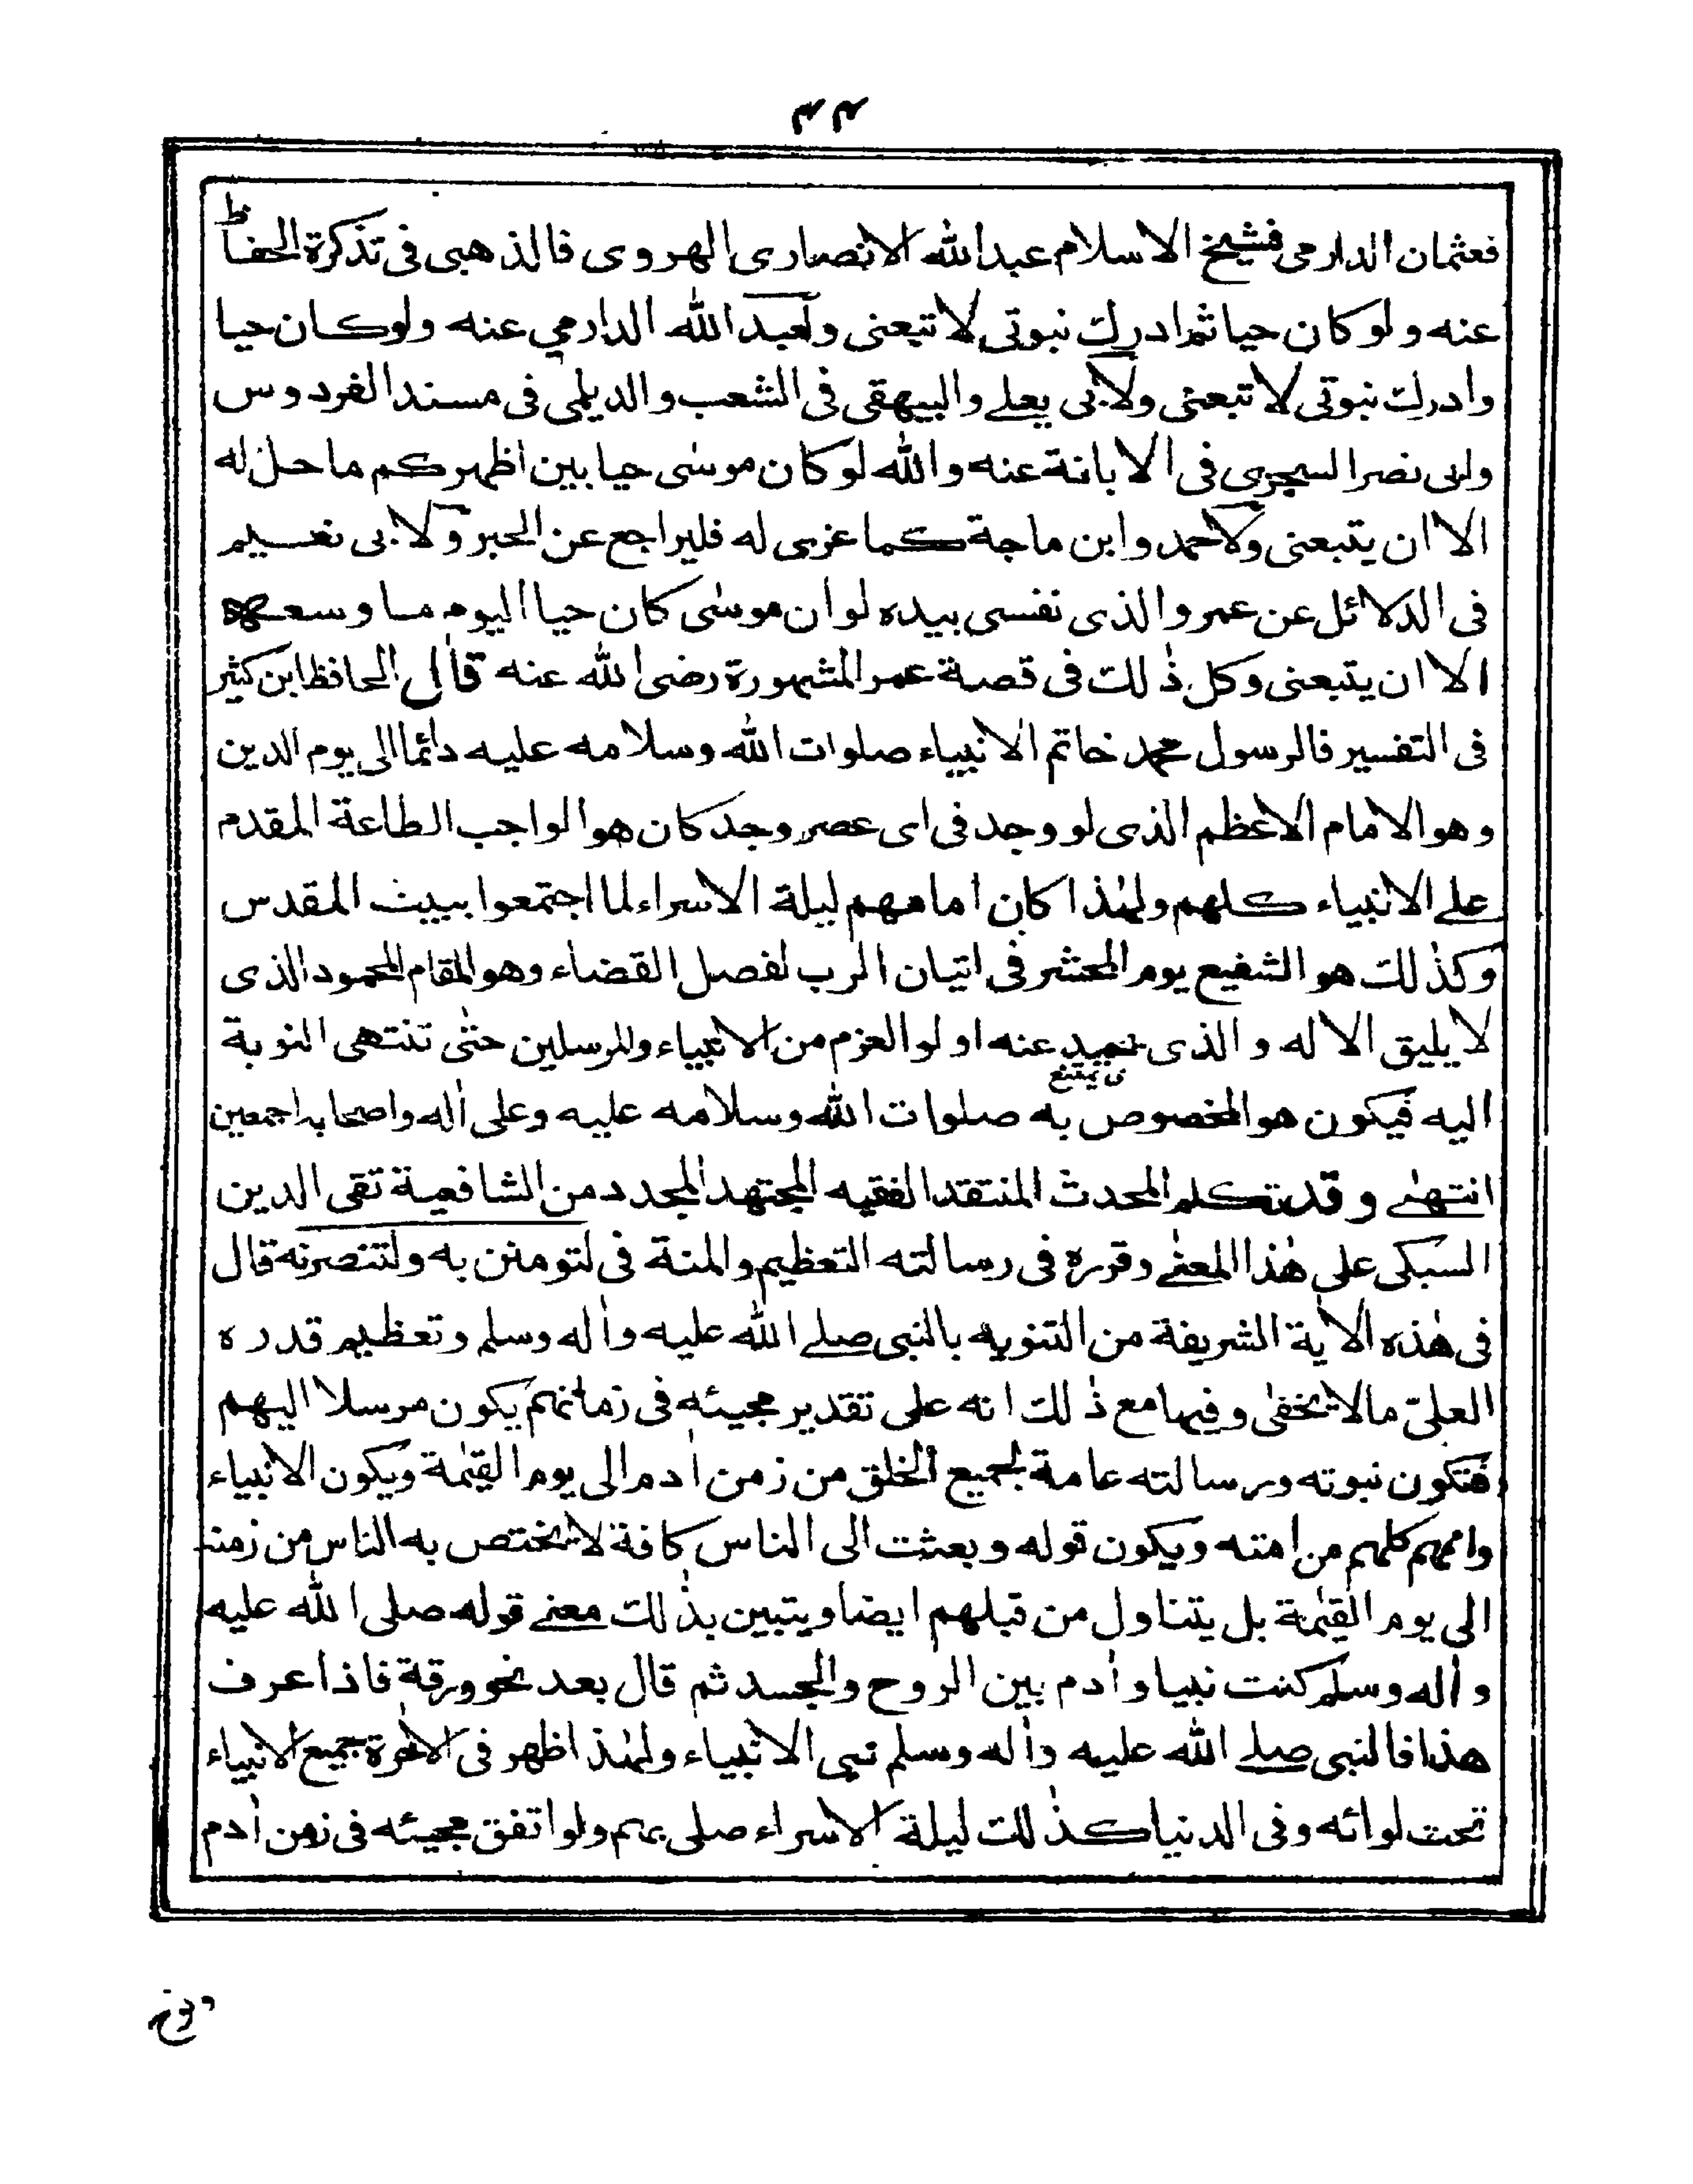 ۴۴
فعثمان الدارمی فشیخ الاسلام عبدالله الانصاری الهروی فالذهبی فی تذکرة الحفاظ
عنه ولو کان حیا ثم ادرك نبوتی لاتبعنی ولعبدالله الدارمي عنه ولوکان حیا
وادرك نبوتی لاتبعنی ولابی یعلے والبیهقی فی الشعب والدیلمی فی مسند الفردوس
ولابی نصر السجزی فی الابانة عنه والله لو کان موسٰی حیا بین اظهرکم ما حل له
الا ان یتبعنی ولاحمد وابن ماجة کما عزی له فلیراجع عن الحبر ولابی نعیم
فی الدلائل عن عمر والذی نفسی بیده لو ان موسٰی کان حیا الیوم ما وسعه
الا ان یتبعنی وکل ذٰلك فی قصة عمر المشهورة رضی الله عنه قال الحافظ ابن کثیر
فی التفسیر فالرسول محمد خاتم الانبیاء صلوات الله وسلامه علیه دائما الی یوم الدین
وهو الامام الاعظم الذی لو وجد فی ای عصر وجد کان هو الواجب الطاعة المقدم
علے الانبیاء کلهم ولهٰذا کان امامهم لیلة الاسراء لما اجتمعوا ببیت المقدس
وکذٰلك هو الشفیع یوم المحشر فی اتیان الرب لفصل القضاء وهو المقام المحمود الذی
لا یلیق الا له والذی یحید عنه اولو العزم من الانبیاء والمرسلین حتٰی تنتهی النوبة
ی یمتنع
الیه فیکون هو المخصوص به صلوات الله وسلامه علیه وعلی اٰله واصحابه اجمعین
انتهٰے وقد تکلم المحدث المنتقد الفقیه المجتهد المجدد من الشافعیة تقی الدین
السبکی علی هٰذا المعنٰے وقرره فی رسالته التعظیم والمنة فی لتومنن به ولتنصرنه قال
فی هٰذه الاٰیة الشریفة من التنویه بالنبی صلے الله علیه واٰله وسلم وتعظیم قدره
العلیّ مالا یخفٰی وفیها مع ذٰلك انه علی تقدیر مجیئه فی زمانهم یکون مرسلا الیهم
فتکون نبوته ورسالته عامة لجمیع الخلق من زمن اٰدم الی یوم القیٰمة ویکون الانبیاء
واممهم کلهم من امته ویکون قوله وبعثت الی الناس کافة لا یختص به الناس من زمنه
الی یوم القیٰمة بل یتناول من قبلهم ایضا ویتبین بذٰلك معنے قوله صلی الله علیه
واٰله وسلم کنت نبیا واٰدم بین الروح والجسد ثم قال بعد نحو ورقة فاذا عرف
هذا فالنبی صلے الله علیه واٰله وسلم نبی الانبیاء ولهٰذا ظهر فی الاٰخرة جمیع الانبیاء
تحت لوائه وفی الدنیا کذٰلك لیلة الاسراء صلی بهم ولو اتفق مجیئه فی زمن اٰدم